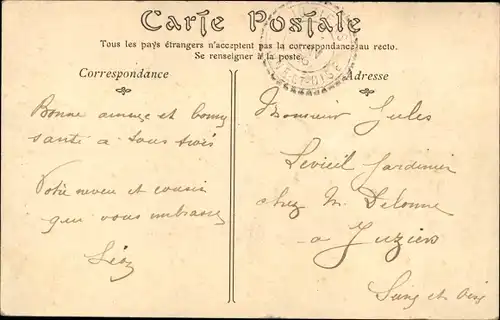 Carte Postale
Tous les pays étrangers n'acceptent pas la correspondance au recto.
Se renseigner à la poste.
Correspondance
Adresse
Bonne année et bonne
santé a tous trois
Votre neveu et cousin
qui vous embrasse
Léon
Monsieur Jules
Levieil Jardinier
chez M. Delonne
a Juziers
Seine et Oise